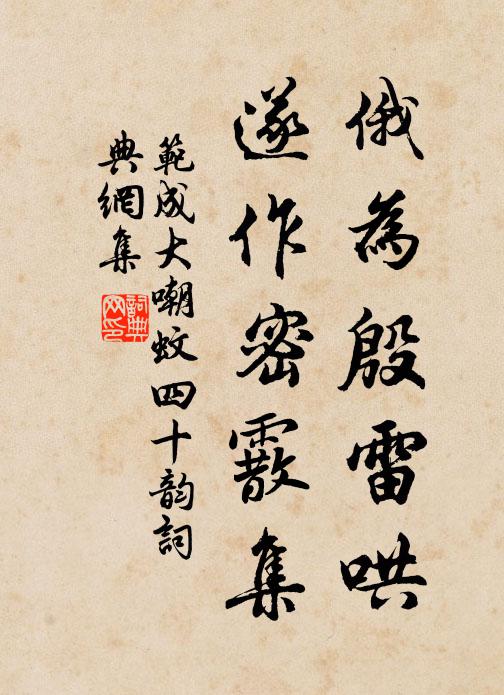 俄為殷雷哄
遂作密霰集
範成大嘲蚊四十韵詞
典網集
詞典
网印